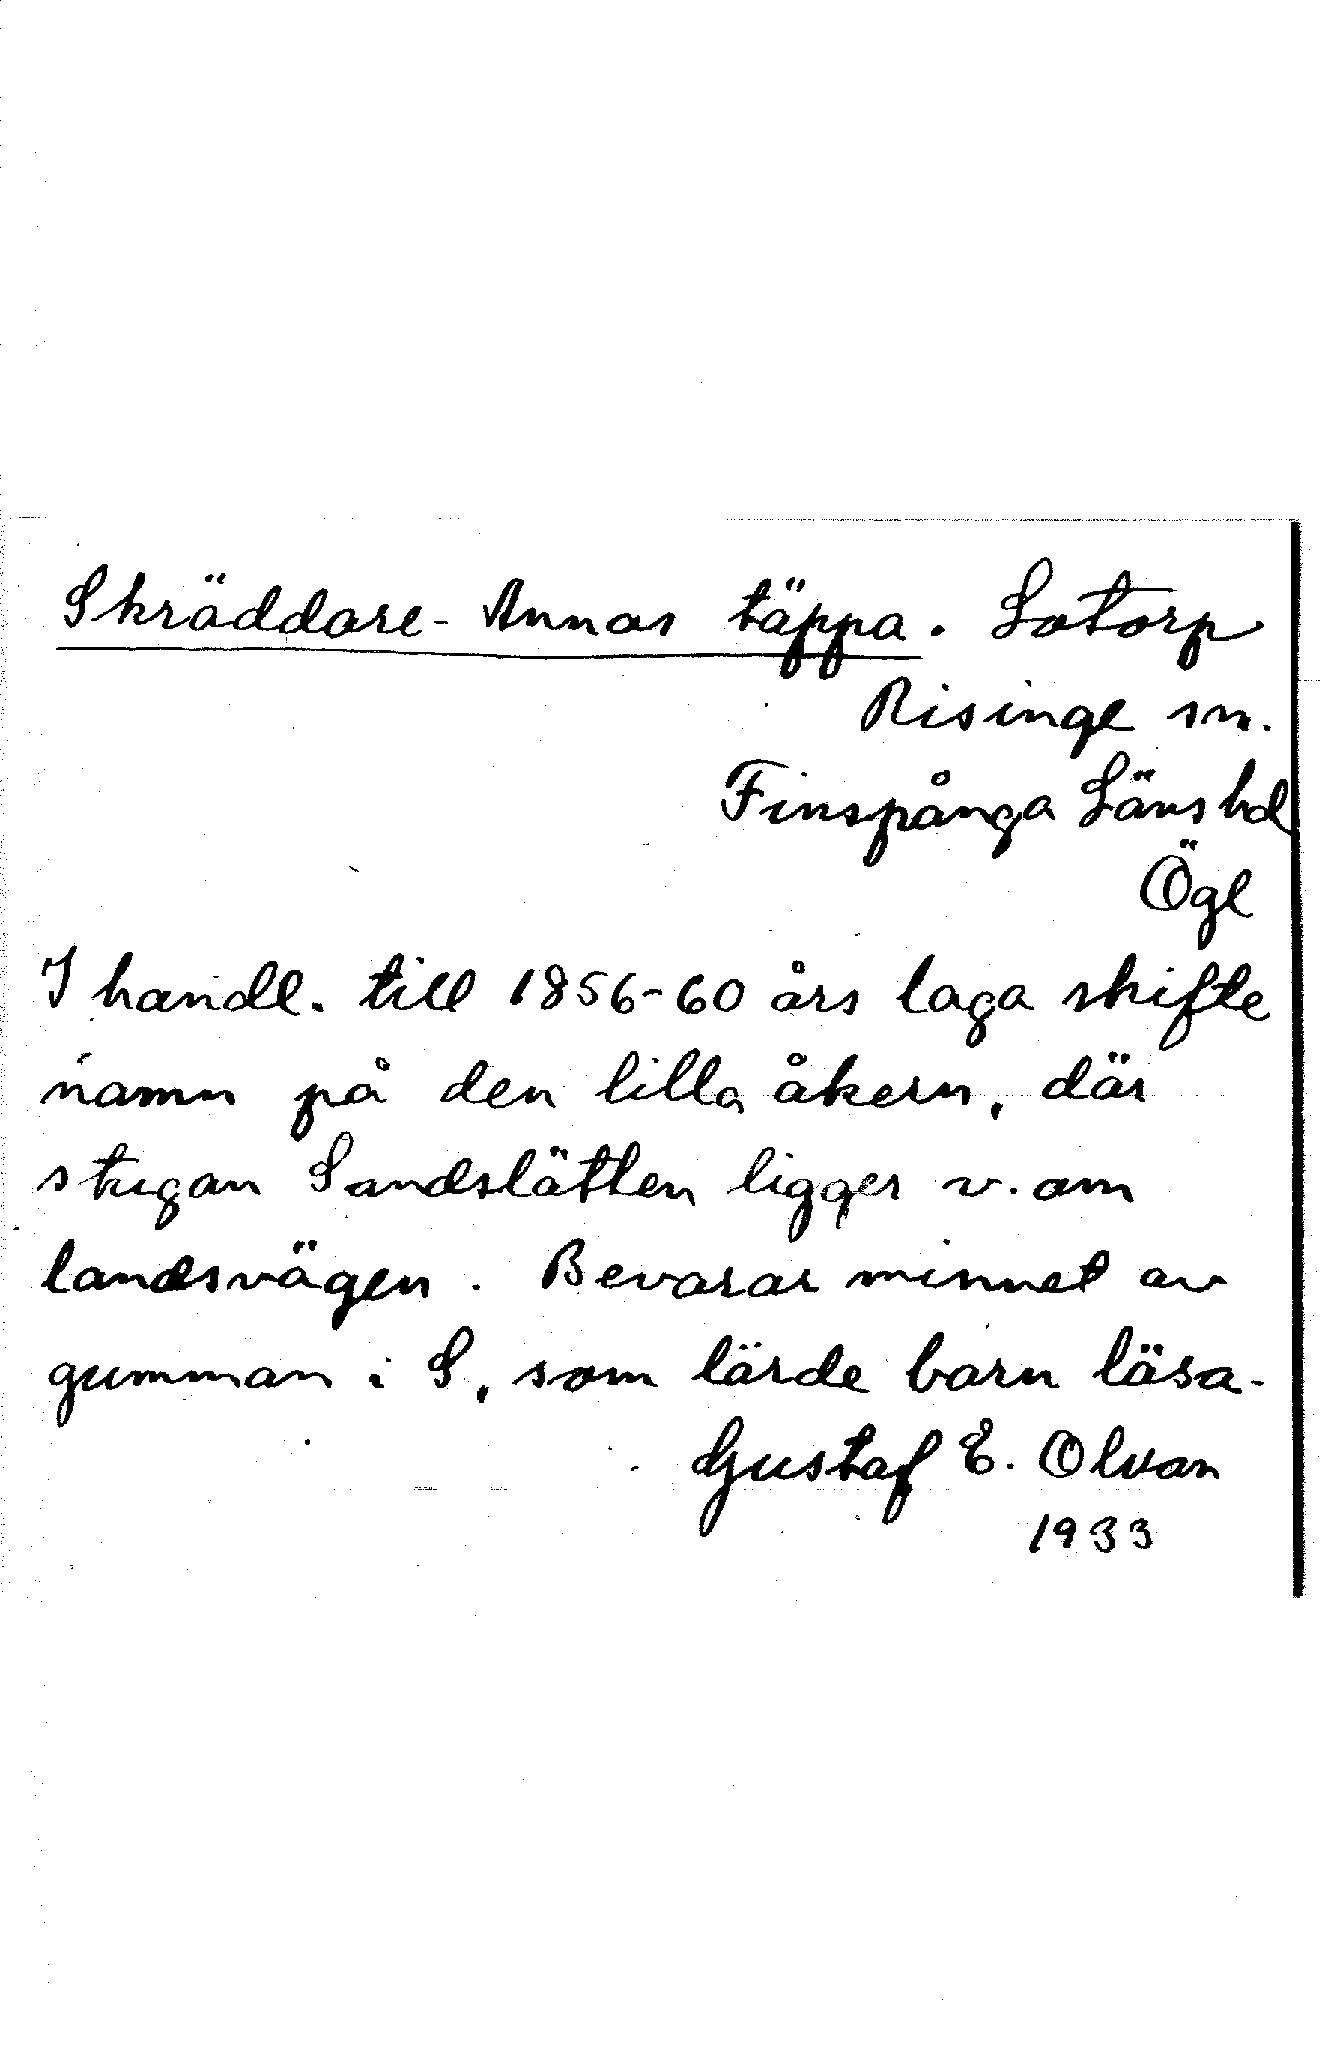 Skräddare-Annas täppa. Lotorp
Risinge sn.
Finspånga Läns hd
Ögl
I handl. till 1856-60 års laga skifte
namn på den lilla åkern, där
stugan Sandslätten ligger v. om
landsvägen. Bevarar minnet av
gumman i S, som lärde barn läsa.
Gustaf E. Olvan
1933